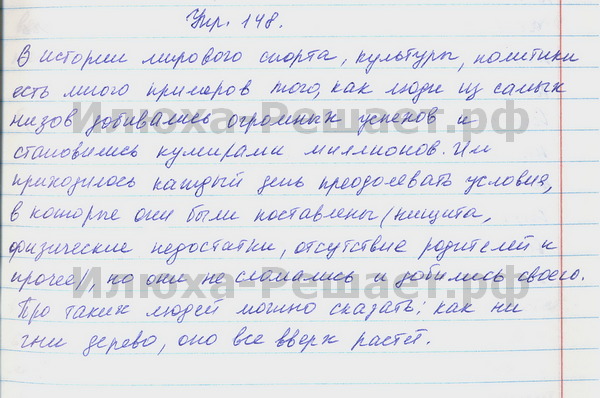 Упр. 148.
В истории мирового спорта, культуры, политики
есть много примеров того, как люди из самых
низов добивались огромных успехов и
становились кумирами миллионов. Им
приходилось каждый день преодолевать условия,
в которые они были поставлены (нищита,
физические недостатки, отсутствие родителей и
прочее), но они не сломались и добились своего.
Про таких людей можно сказать: как ни
гни дерево, оно все вверх растет.
Илюха-Решает.рф
Илюха-Решает.рф